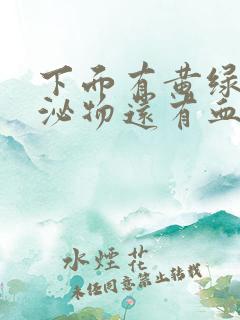 下而有黄绿
泌物还有血
水煙花
未经同意禁止转载